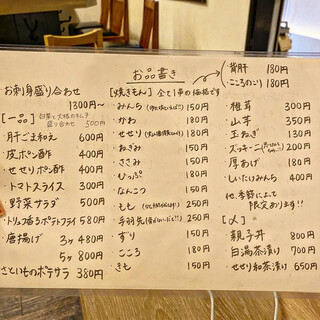 お品書き
お刺身盛り合わせ
1300円~
[一品]
500円
肝ごま和え 600円
皮ポン酢 400円
せせりポン酢 400円
トマトスライス 300円
野菜サラダ 500円
トリュフ香るポテトフライ 580円
唐揚げ 3ヶ 480円
5ヶ 800円
さといものポテサラ 380円
[焼きもん] 全て1串の価格です
みんち 150円
かわ 180円
せせり 180円
ねぎみ 150円
ささみ 150円
ちっぷ 180円
なんこつ 150円
もも 250円
手羽先 250円
ずり 150円
こころ 180円
きも 150円
背肝 180円
こころのこり 180円
椎茸 300円
山芋 350円
玉ねぎ 130円
ズッキーニ 200円
厚あげ 180円
しいたけみんち 400円
他、季節によって
限定あります!!
[〆]
親子丼 800円
白湯茶漬け 700円
せせり和茶漬け 650円